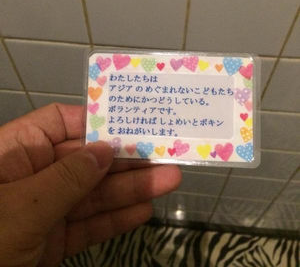 わたしたちは
アジア の めぐまれないこどもたち
のためにかつどうしている。
ボランティアです。
よろしければ しょめいとボキン
を おねがいします。